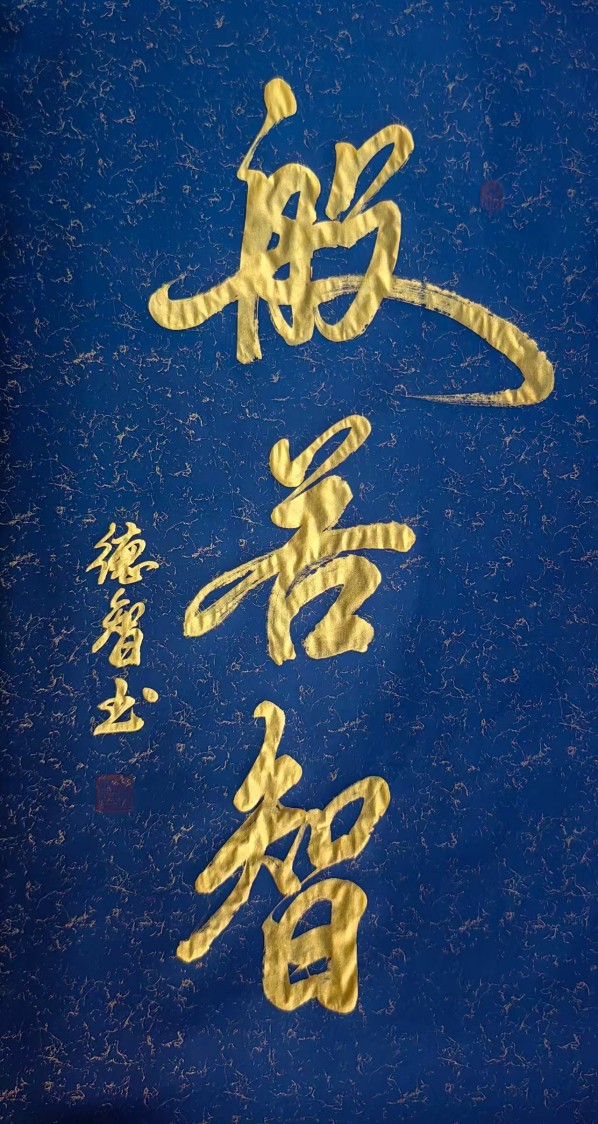 般若智
德智书